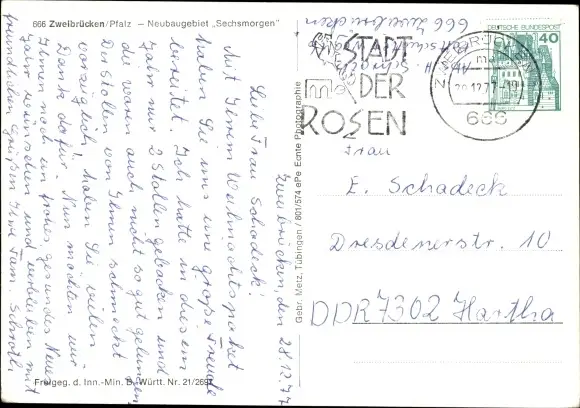 666 Zweibrücken/Pfalz – Neubaugebiet „Sechsmorgen"
Zweibrücken, den 28.12.77
Liebe Frau Schadeck!
Mit Ihrem Weihnachtspaket
haben Sie uns eine große Freude
bereitet. Ich hatte in diesem
Jahr nur 2 Stollen gebacken und
die waren auch nicht so gut gelungen.
Der Stollen von Ihnen schmeckt
vorzüglich, haben Sie vielen
Dank dafür. Nun möchten wir
Ihnen noch ein frohes gesundes Neues
Jahr wünschen und verbleiben mit
freundlichen Grüßen Ihre Fam.
Freigeg. d. Inn.-Min. B. Württ. Nr. 21/269
Gebr. Metz, Tübingen / 801/574 ePe Echte Photographie
666 Zweibrücken
STADT
DER
ROSEN
ZWEIBRÜCKEN
77-19
666
DEUTSCHE BUNDESPOST
40
Frau
E. Schadeck
Dresdenerstr. 10
DDR 7302 Hartha